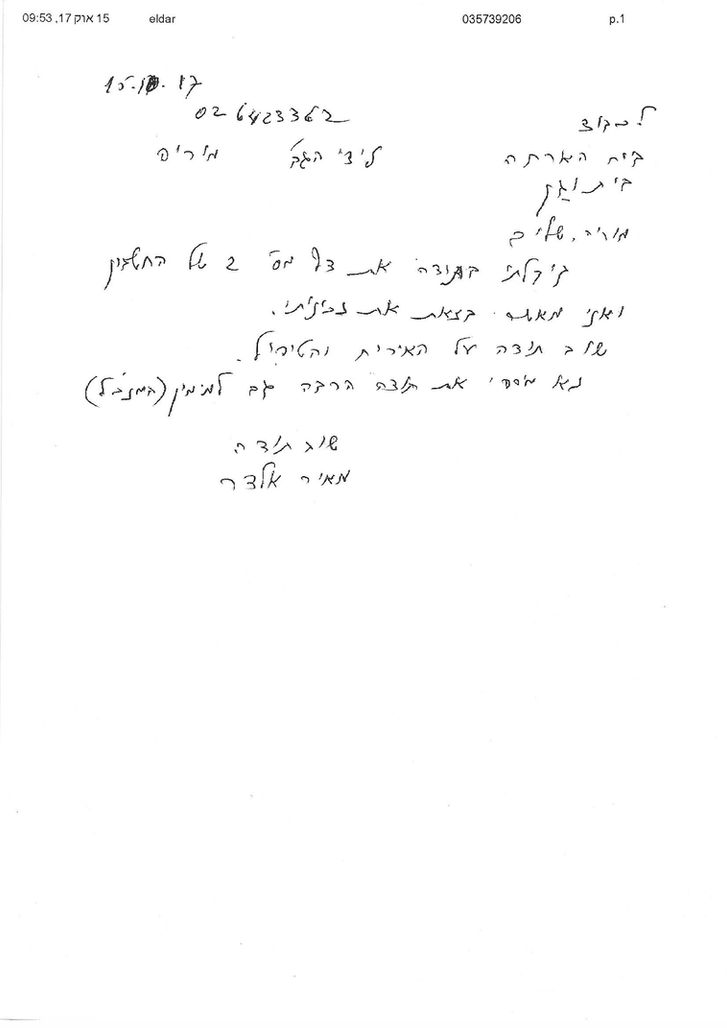 09:53 ,17 אוק 15 eldar 035739206 p.1
15.10.17
02 6423362
לכבוד
בית הארחה
בית וגן
לידי הגב' מרים
ירושלים
קיבלתי בתודה את דף מס' 2 של החשבון
ואני מאשר בזאת את
שוב תודה על האירוח והטיפול.
נא מסרי את תודה הרבה גם (המנהל)
שוב תודה
מאיר אלדר